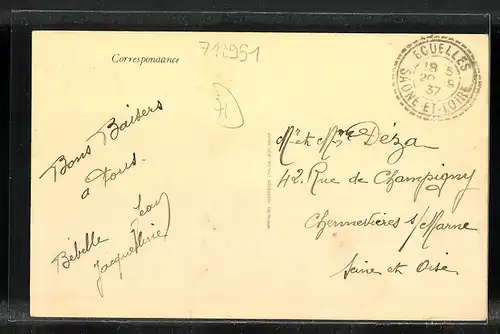 711951
Correspondance
71
ECUELLES
18 5
20 - 9
37
SAÔNE-ET-LOIRE
Bons Baisers
a tous.
Bebelle Jean
Jacqueline
Mr et Mme Déza
42 Rue de Champigny
Chennevières s/Marne
Seine et Oise